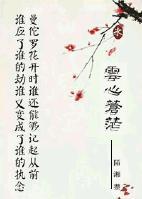 曼陀罗花开时谁还能够记起从前
谁应了谁的劫谁又变成了谁的执念
雲心蒼茫
陌湘 著